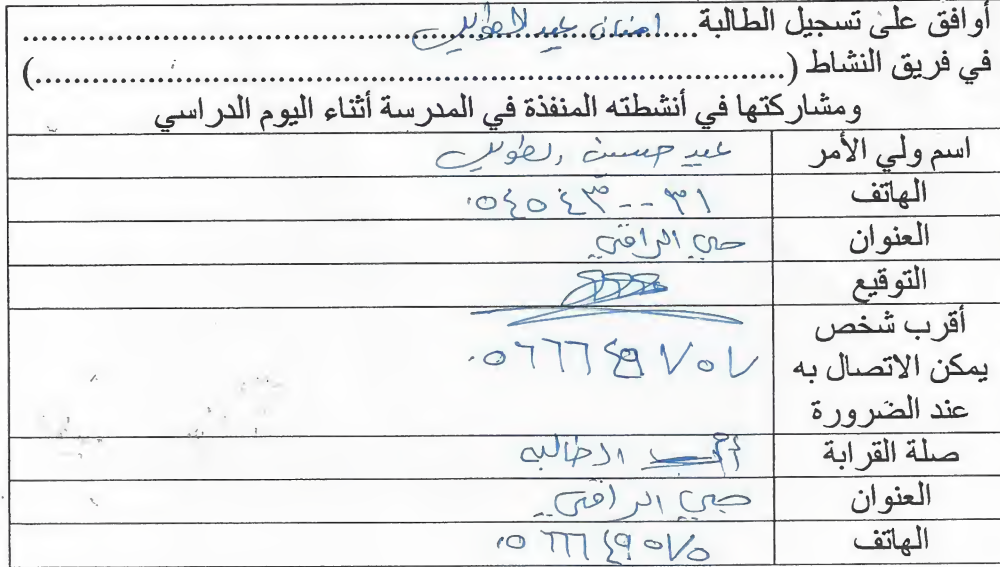 أوافق على تسجيل الطالبة....امتنان عيد الطويلعي....
في فريق النشاط (....)
ومشاركتها في أنشطته المنفذة في المدرسة أثناء اليوم الدراسي
اسم ولي الأمر عيد حسين
الهاتف ٠٥٤٥٤٣٠٠٣١
العنوان حي الراقي
التوقيع
أقرب شخص
يمكن الاتصال به ٠٥٦٦٦٤٩٧٥٧
عند الضرورة
صلة القرابة الطالبه
العنوان حي الراقي
الهاتف